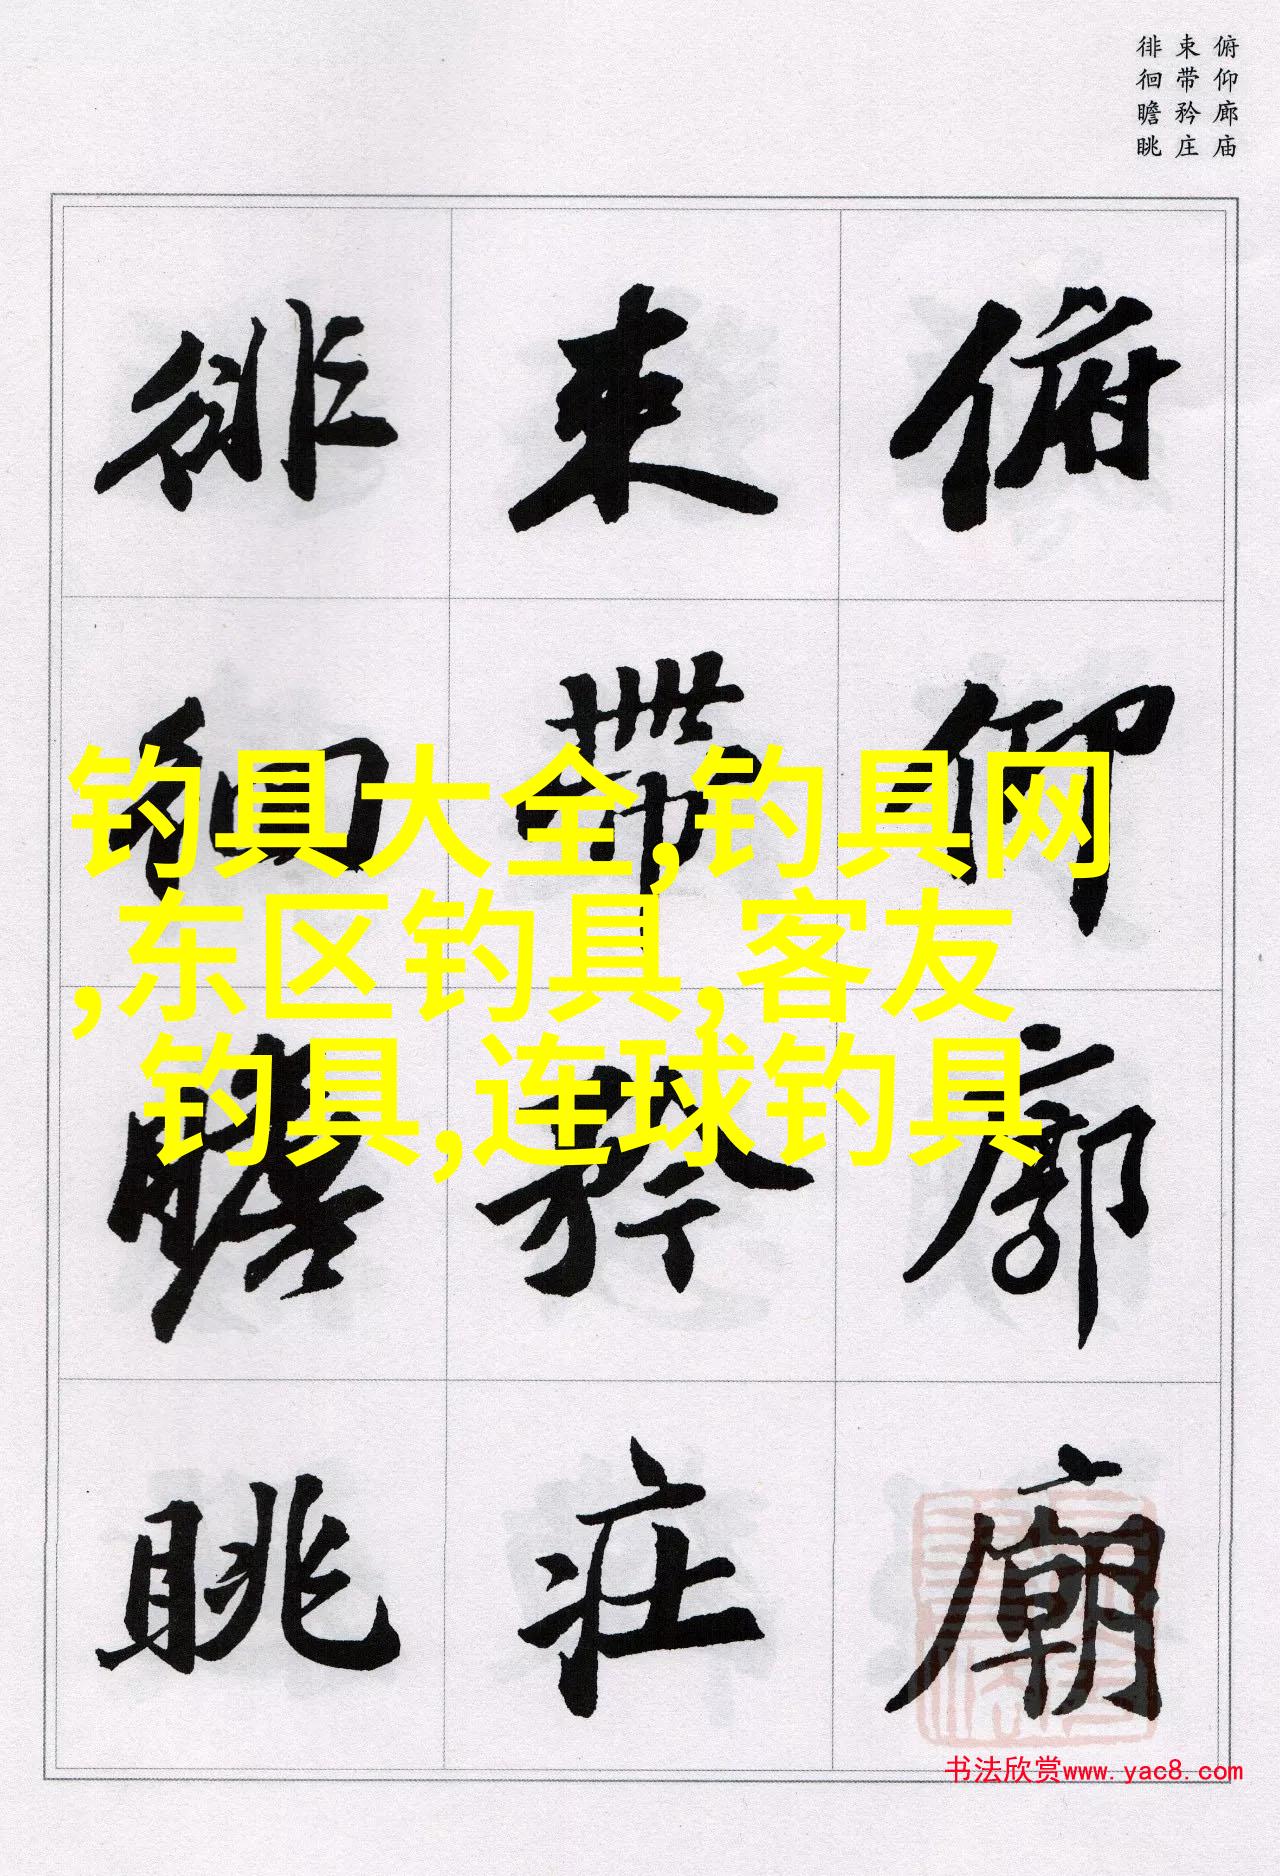 俯仰廊庙
束带矜庄
徘徊瞻眺
俯仰廊廟
束帶矜莊
徘徊瞻眺
钓具大全,钓具网
,东区钓具,客友
钓具,连球钓具
书法欣赏www.yac8.com